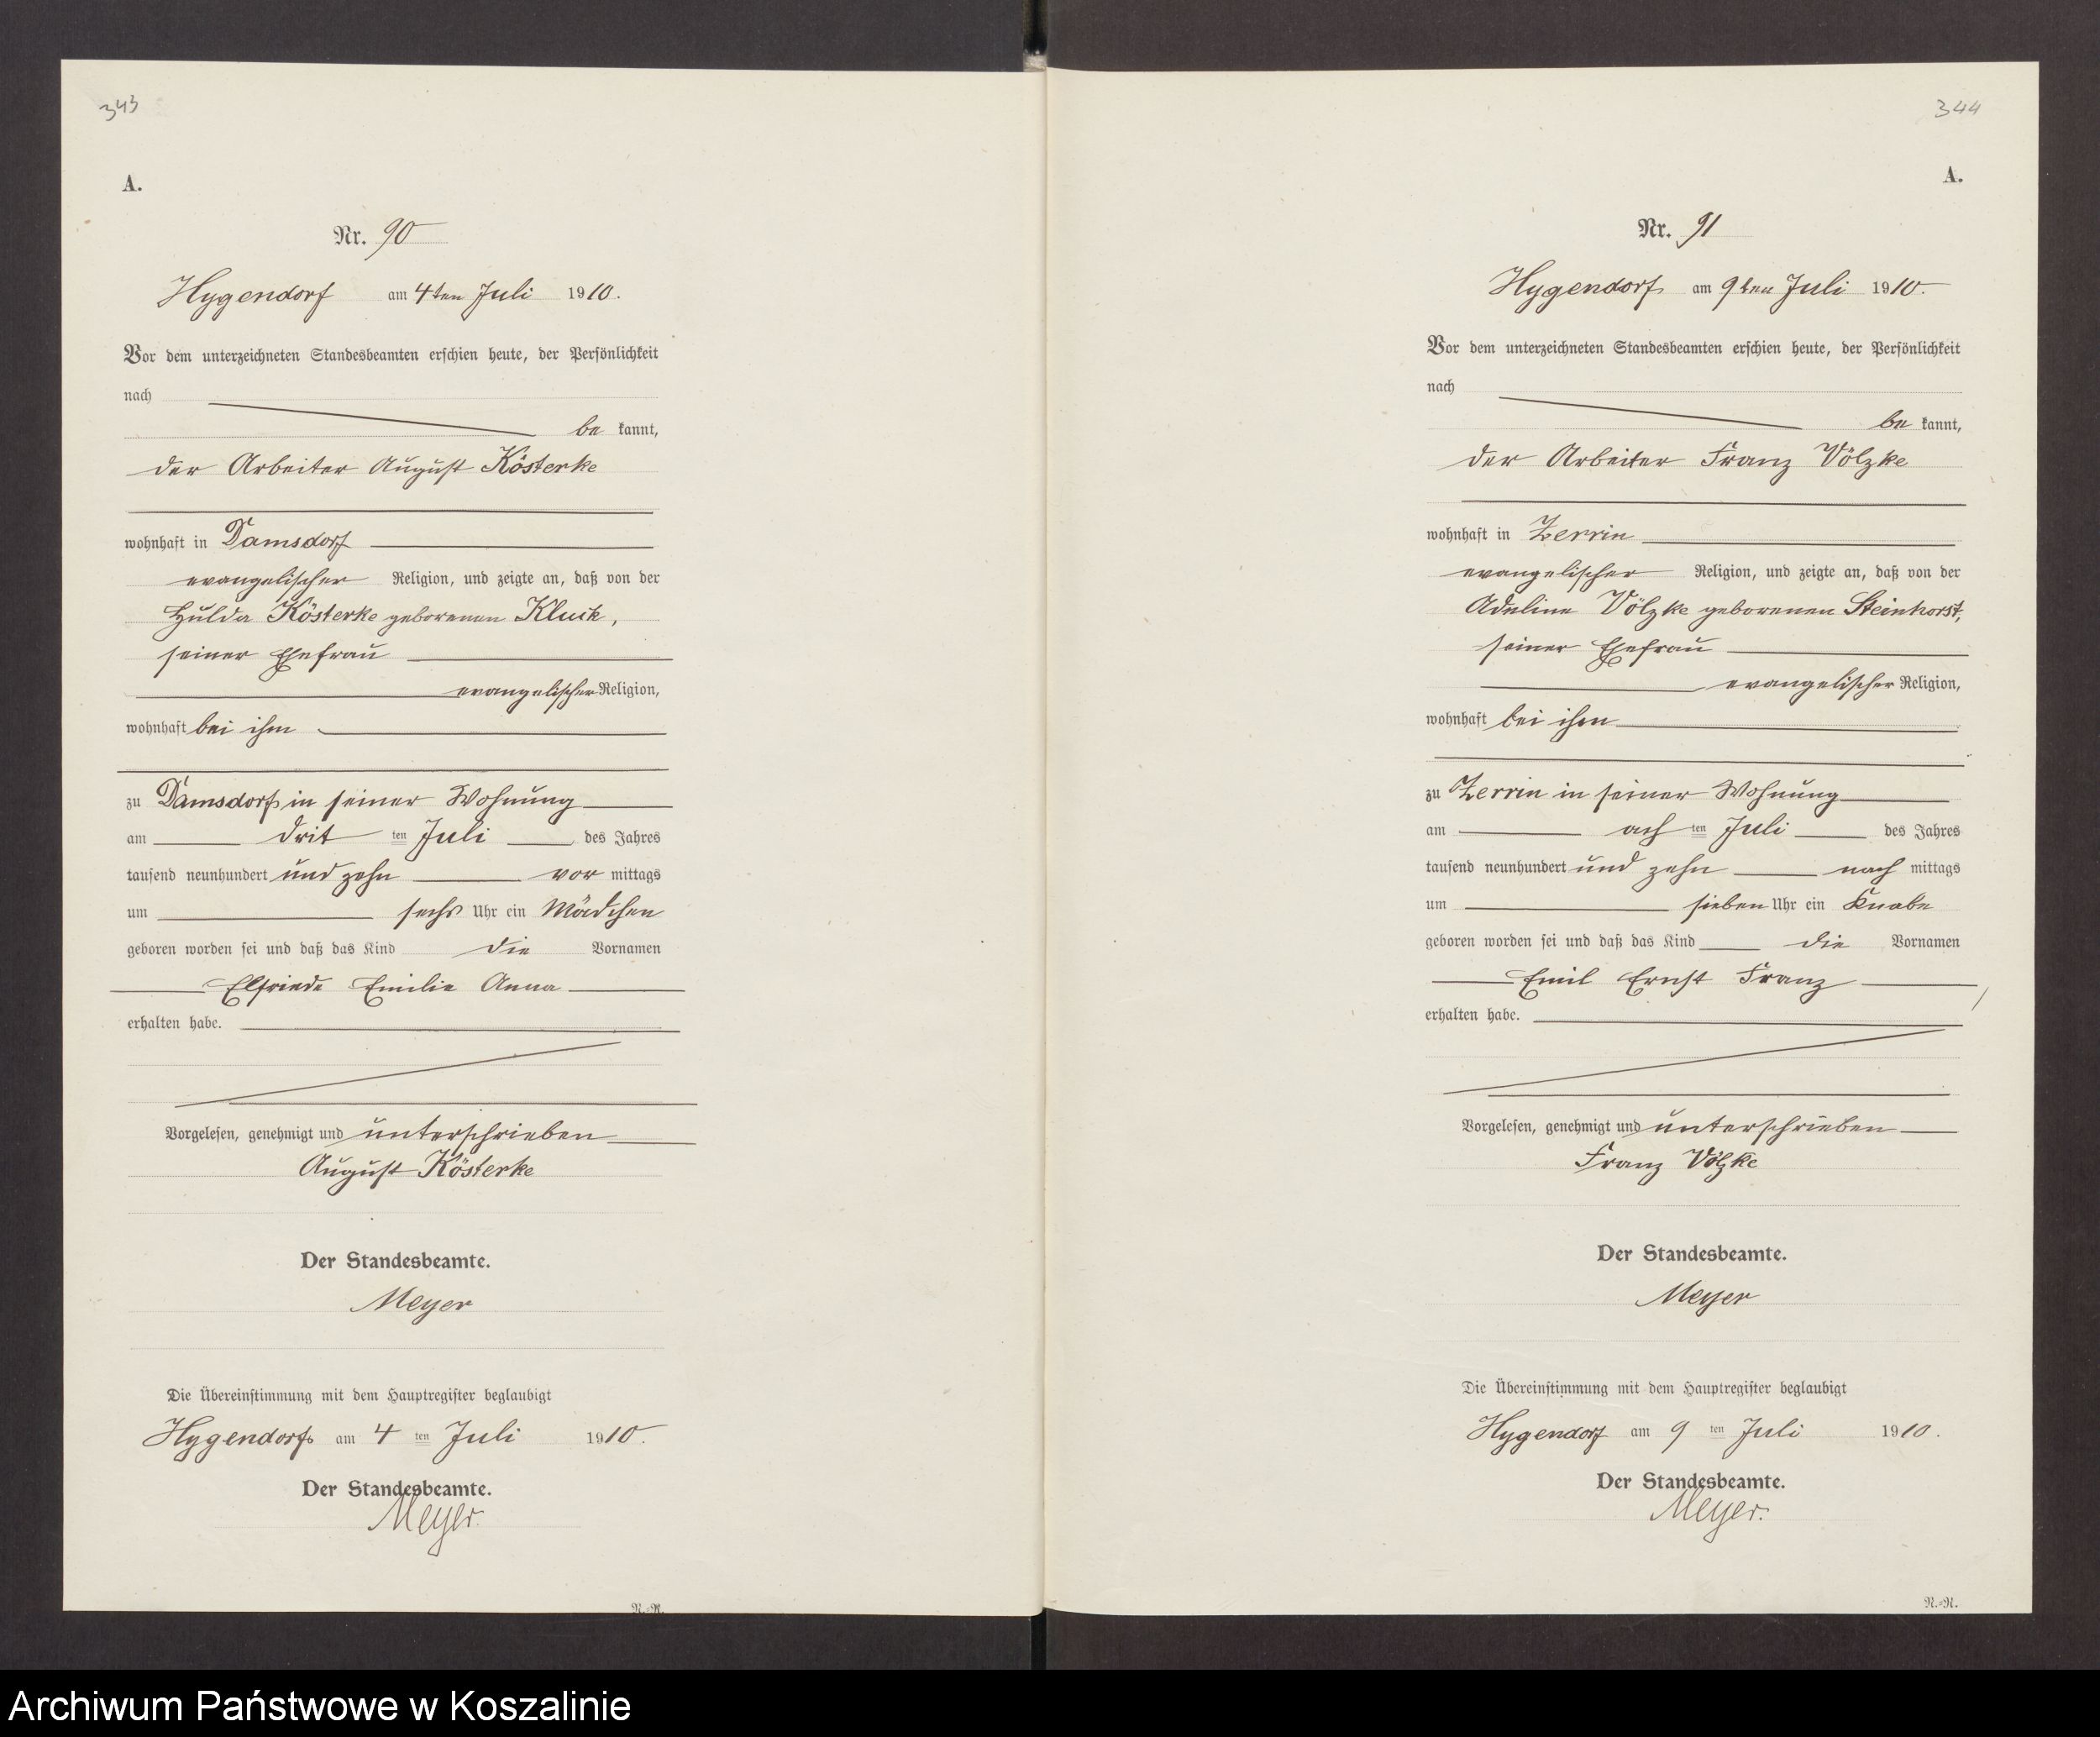 343
A.
Nr. 90
Hygendorf am 4ten Juli 1910.
Vor dem unterzeichneten Standesbeamten erschien heute, der Persönlichkeit
nach
be kannt,
der Arbeiter August Kösterke
wohnhaft in Damsdorf
evangelischer Religion, und zeigte an, daß von der
Hulda Kösterke geborenen Kluck,
seiner Ehefrau
evangelischer Religion,
wohnhaft bei ihm
zu Damsdorf in seiner Wohnung
am drit ten Juli des Jahres
tausend neunhundert und zehn vor mittags
um sechs Uhr ein Mädchen
geboren worden sei und daß das Kind die Vornamen
Elfriede Emilie Anna
erhalten habe.
Vorgelesen, genehmigt und unterschrieben
August Kösterke
Der Standesbeamte.
Meyer
Die Übereinstimmung mit dem Hauptregister beglaubigt
Hygendorf am 4 ten Juli 1910.
Der Standesbeamte.
Meyer.
N.-N.
344
A.
Nr. 91
Hygendorf am 9ten Juli 1910.
Vor dem unterzeichneten Standesbeamten erschien heute, der Persönlichkeit
nach
be kannt,
der Arbeiter Franz Völzke
wohnhaft in Zerrin
evangelischer Religion, und zeigte an, daß von der
Adeline Völzke geborenen Steinhorst,
seiner Ehefrau
evangelischer Religion,
wohnhaft bei ihm
zu Zerrin in seiner Wohnung
am ach ten Juli des Jahres
tausend neunhundert und zehn nach mittags
um sieben Uhr ein Knabe
geboren worden sei und daß das Kind die Vornamen
Emil Ernst Franz
erhalten habe.
Vorgelesen, genehmigt und unterschrieben
Franz Völzke
Der Standesbeamte.
Meyer
Die Übereinstimmung mit dem Hauptregister beglaubigt
Hygendorf am 9 ten Juli 1910.
Der Standesbeamte.
Meyer.
N.-N.
Archiwum Państwowe w Koszalinie